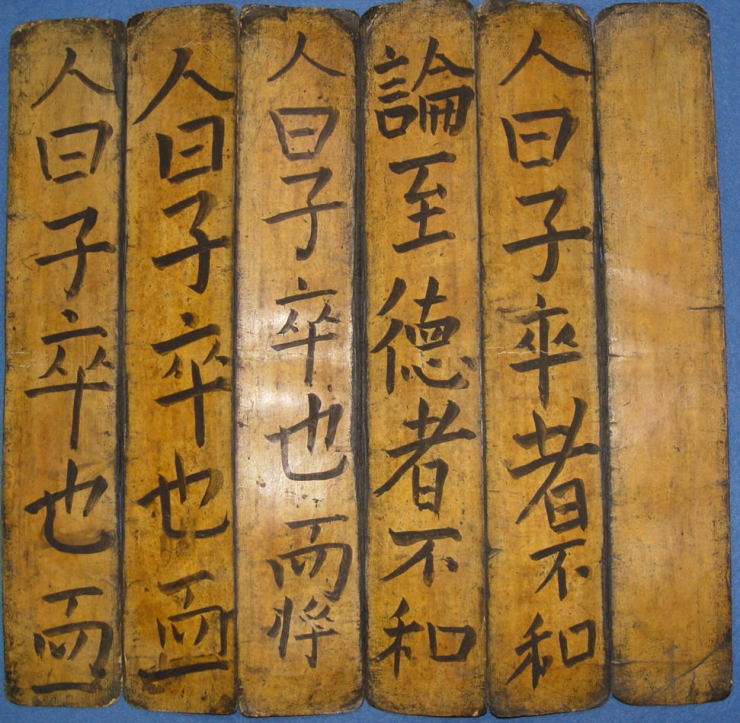 人曰子卒者不和
論至德者不和
人曰子卒也而
人曰子卒也而一
人曰子卒也而一